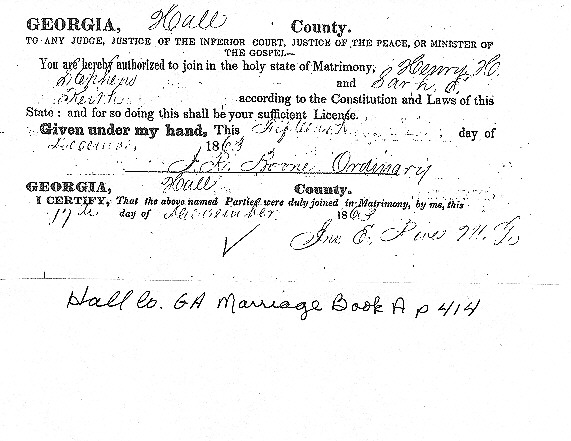 GEORGIA, Hall County.
TO ANY JUDGE, JUSTICE OF THE INFERIOR COURT, JUSTICE OF THE PEACE, OR MINISTER OF
THE GOSPEL—
You are hereby authorized to join in the holy state of Matrimony, Henry H.
Stephens and Sarah E.
Keith according to the Constitution and Laws of this
State: and for so doing this shall be your sufficient License.
Given under my hand, This Fifteenth day of
December 1863
J. R. Boone Ordinary
GEORGIA, Hall County.
I CERTIFY, That the above named Parties were duly joined in Matrimony, by me, this
17th day of December 1863
Jno E.
Hall Co. GA Marriage Book A p 414